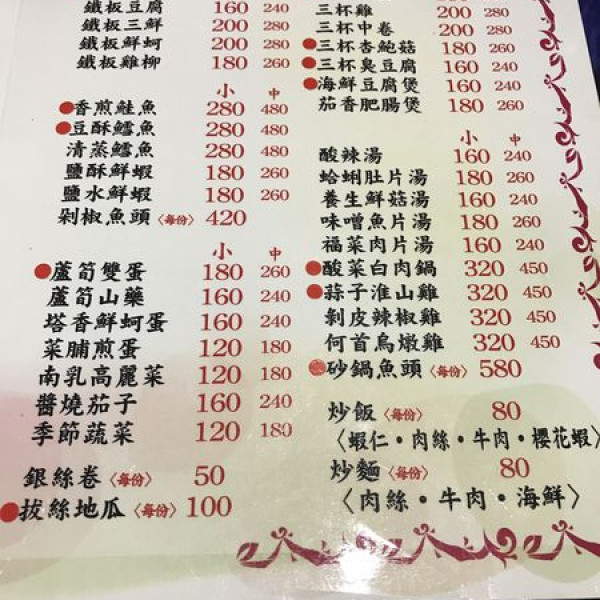 鐵板豆腐 160 240
鐵板三鮮 200 280
鐵板鮮蚵 200 280
鐵板雞柳 180 260
小 中
香煎鮭魚 280 480
豆酥鱈魚 280 480
清蒸鱈魚 280 480
鹽酥鮮蝦 180 260
鹽水鮮蝦 180 260
剁椒魚頭〈每份〉420
小 中
蘆筍雙蛋 180 260
蘆筍山藥 160 240
塔香鮮蚵蛋 160 240
菜脯煎蛋 120 180
南乳高麗菜 120 180
醬燒茄子 160 240
季節蔬菜 120 180
銀絲卷〈每份〉50
拔絲地瓜〈每份〉100
三杯雞 200 280
三杯中卷 200 280
三杯杏鮑菇 180 260
三杯臭豆腐 160 240
海鮮豆腐煲 160 240
茄香肥腸煲 180 260
小 中
酸辣湯 160 240
蛤蜊肚片湯 180 260
養生鮮菇湯 160 240
味噌魚片湯 180 260
福菜肉片湯 160 240
酸菜白肉鍋 320 450
蒜子淮山雞 320 450
剝皮辣椒雞 320 450
何首烏燉雞 320 450
砂鍋魚頭〈每份〉580
炒飯〈每份〉 80
〈蝦仁・肉絲・牛肉・櫻花蝦〉
炒麵〈每份〉 80
〈肉絲・牛肉・海鮮〉